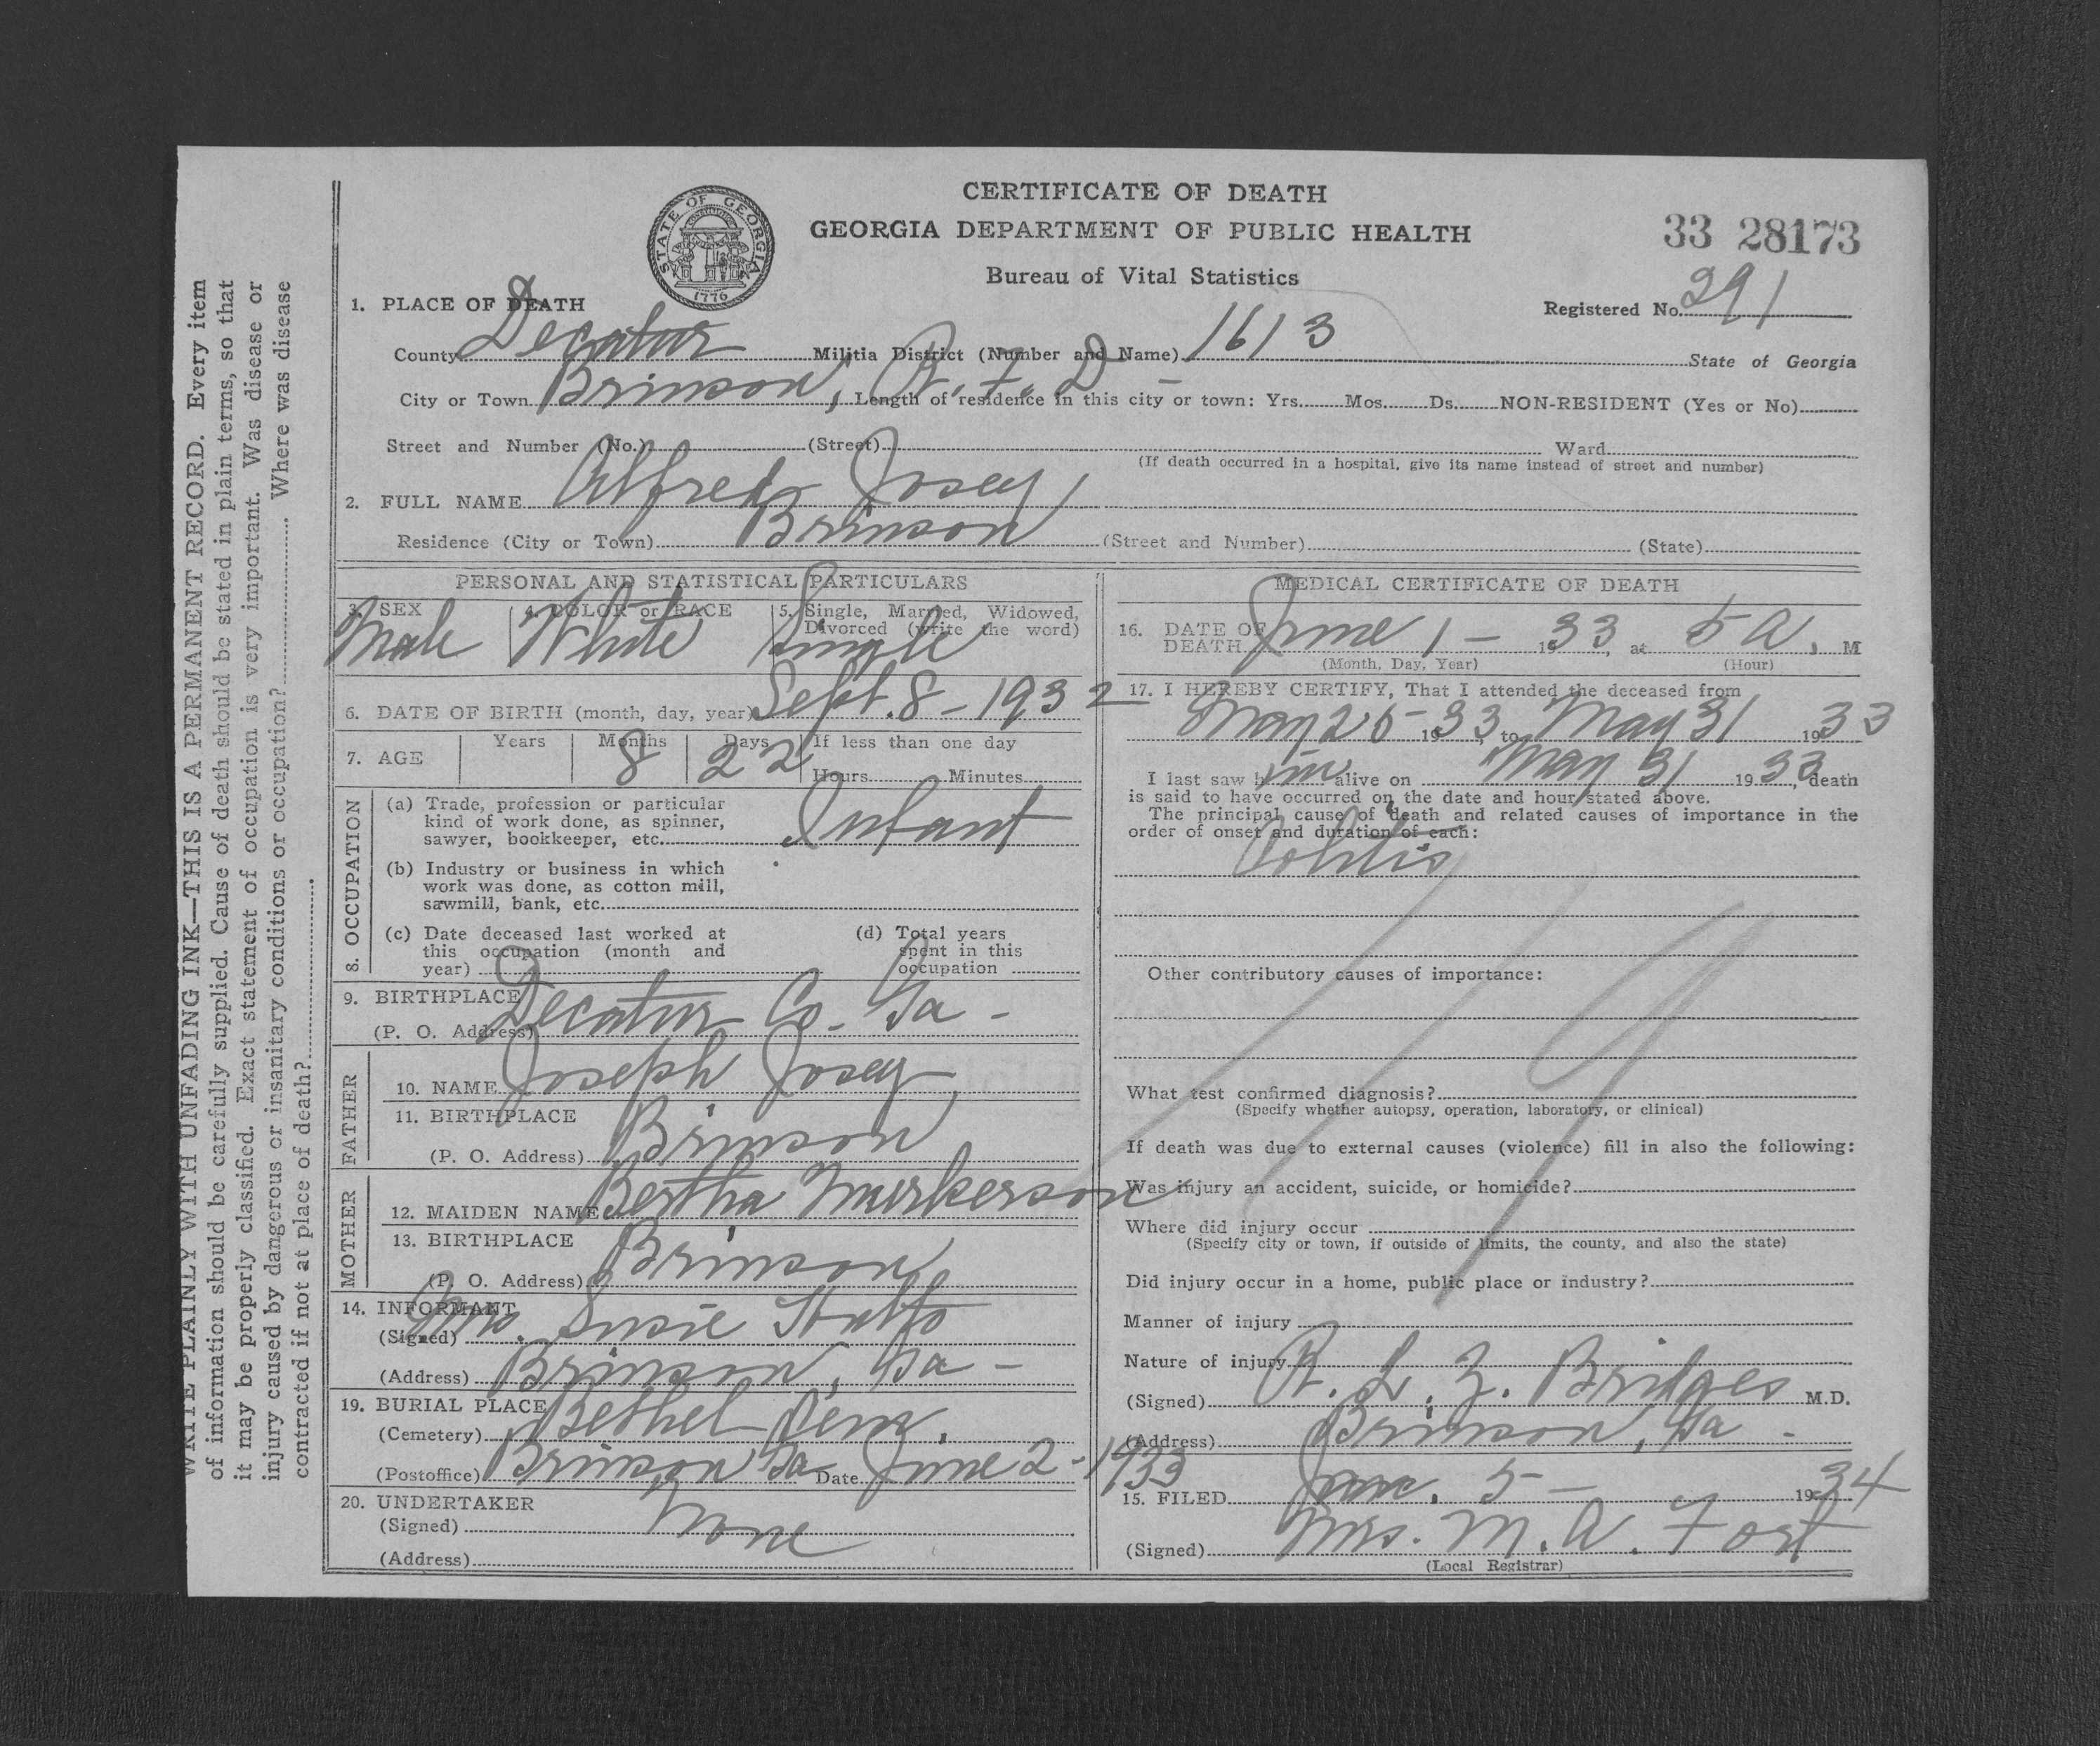 CERTIFICATE OF DEATH
GEORGIA DEPARTMENT OF PUBLIC HEALTH
Bureau of Vital Statistics
STATE OF GEORGIA
1776
33 28173
Registered No. 291
1. PLACE OF DEATH
County Decatur Militia District (Number and Name) 1613 State of Georgia
City or Town Brinson, R. F. D - Length of residence in this city or town: Yrs. Mos. Ds. NON-RESIDENT (Yes or No)
Street and Number (No.) (Street) Ward
(If death occurred in a hospital, give its name instead of street and number)
2. FULL NAME Alfred Josey
Residence (City or Town) Brinson (Street and Number) (State)
PERSONAL AND STATISTICAL PARTICULARS
3. SEX Male 4. COLOR or RACE White 5. Single, Married, Widowed, Divorced (write the word) Single
6. DATE OF BIRTH (month, day, year) Sept. 8 - 1932
7. AGE Years Months 8 Days 22 If less than one day
Hours Minutes
8. OCCUPATION
(a) Trade, profession or particular
kind of work done, as spinner,
sawyer, bookkeeper, etc. Infant
(b) Industry or business in which
work was done, as cotton mill,
sawmill, bank, etc.
(c) Date deceased last worked at
this occupation (month and
year)
(d) Total years
spent in this
occupation
9. BIRTHPLACE
(P. O. Address) Decatur Co. Ga -
FATHER
10. NAME Joseph Josey
11. BIRTHPLACE
(P. O. Address) Brinson
MOTHER
12. MAIDEN NAME Bertha Murkerson
13. BIRTHPLACE
(P. O. Address) Brinson
14. INFORMANT
(Signed) Mrs. Susie
(Address) Brinson, Ga -
19. BURIAL PLACE
(Cemetery) Bethel Cem.
(Postoffice) Brinson Ga Date June 2 - 1933
20. UNDERTAKER
(Signed) None
(Address)
MEDICAL CERTIFICATE OF DEATH
16. DATE OF
DEATH June 1 - 1933, at 5 A. M
(Month, Day, Year) (Hour)
17. I HEREBY CERTIFY, That I attended the deceased from
May 25 - 1933, to May 31 1933
I last saw him alive on May 31 1933, death
is said to have occurred on the date and hour stated above.
The principal cause of death and related causes of importance in the
order of onset and duration of each:
Colitis
Other contributory causes of importance:
What test confirmed diagnosis?
(Specify whether autopsy, operation, laboratory, or clinical)
If death was due to external causes (violence) fill in also the following:
Was injury an accident, suicide, or homicide?
Where did injury occur
(Specify city or town, if outside of limits, the county, and also the state)
Did injury occur in a home, public place or industry?
Manner of injury
Nature of injury
(Signed) R. L. Z. Bridges M.D.
(Address) Brinson, Ga -
15. FILED Jan. 5 - 1934
(Signed) Mrs. M. A. Fort
(Local Registrar)
WRITE PLAINLY WITH UNFADING INK—THIS IS A PERMANENT RECORD. Every item
of information should be carefully supplied. Cause of death should be stated in plain terms, so that
it may be properly classified. Exact statement of occupation is very important. Was disease or
injury caused by dangerous or insanitary conditions or occupation? Where was disease
contracted if not at place of death?